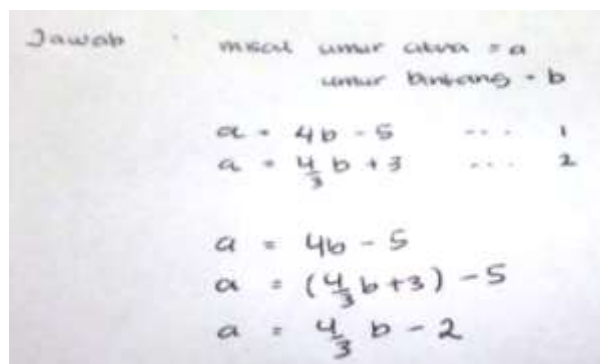 Jawab : misal umur alva = a
umur bintang = b
a = 4b - 5 ... 1
a = 4/3 b + 3 ... 2
a = 4b - 5
a = (4/3 b + 3) - 5
a = 4/3 b - 2